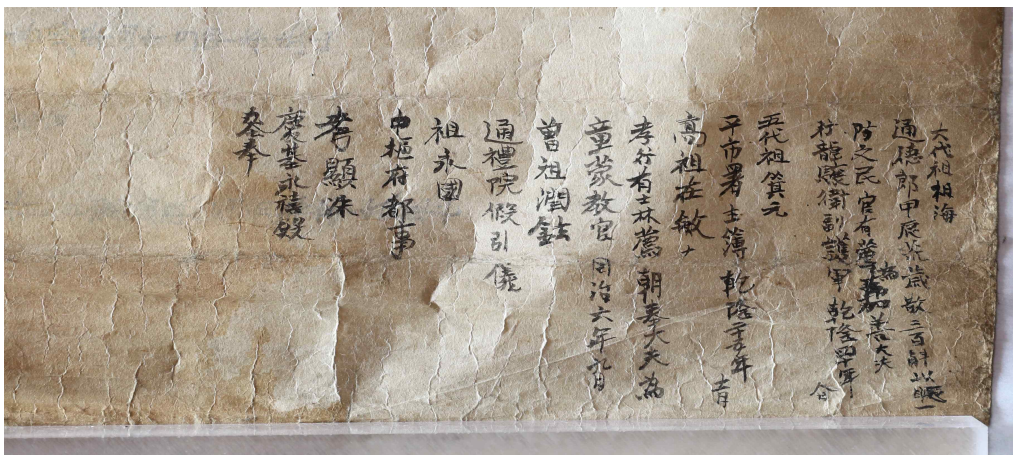 六代祖祖海
通德郎甲辰荒歲散三百斛以賑一
防之民 官有薦 嘉善大夫
行龍驤衛副護軍 乾隆 年 合
五代祖箕元
平市署主簿 乾隆 年 十二月
高祖在敏
孝行有士林薦 朝奉大夫為
童蒙教官 同治六年九月
曾祖潤鉉
通禮院假引儀
祖永國
中樞府都事
考顯洙
慶基永禧殿
參奉